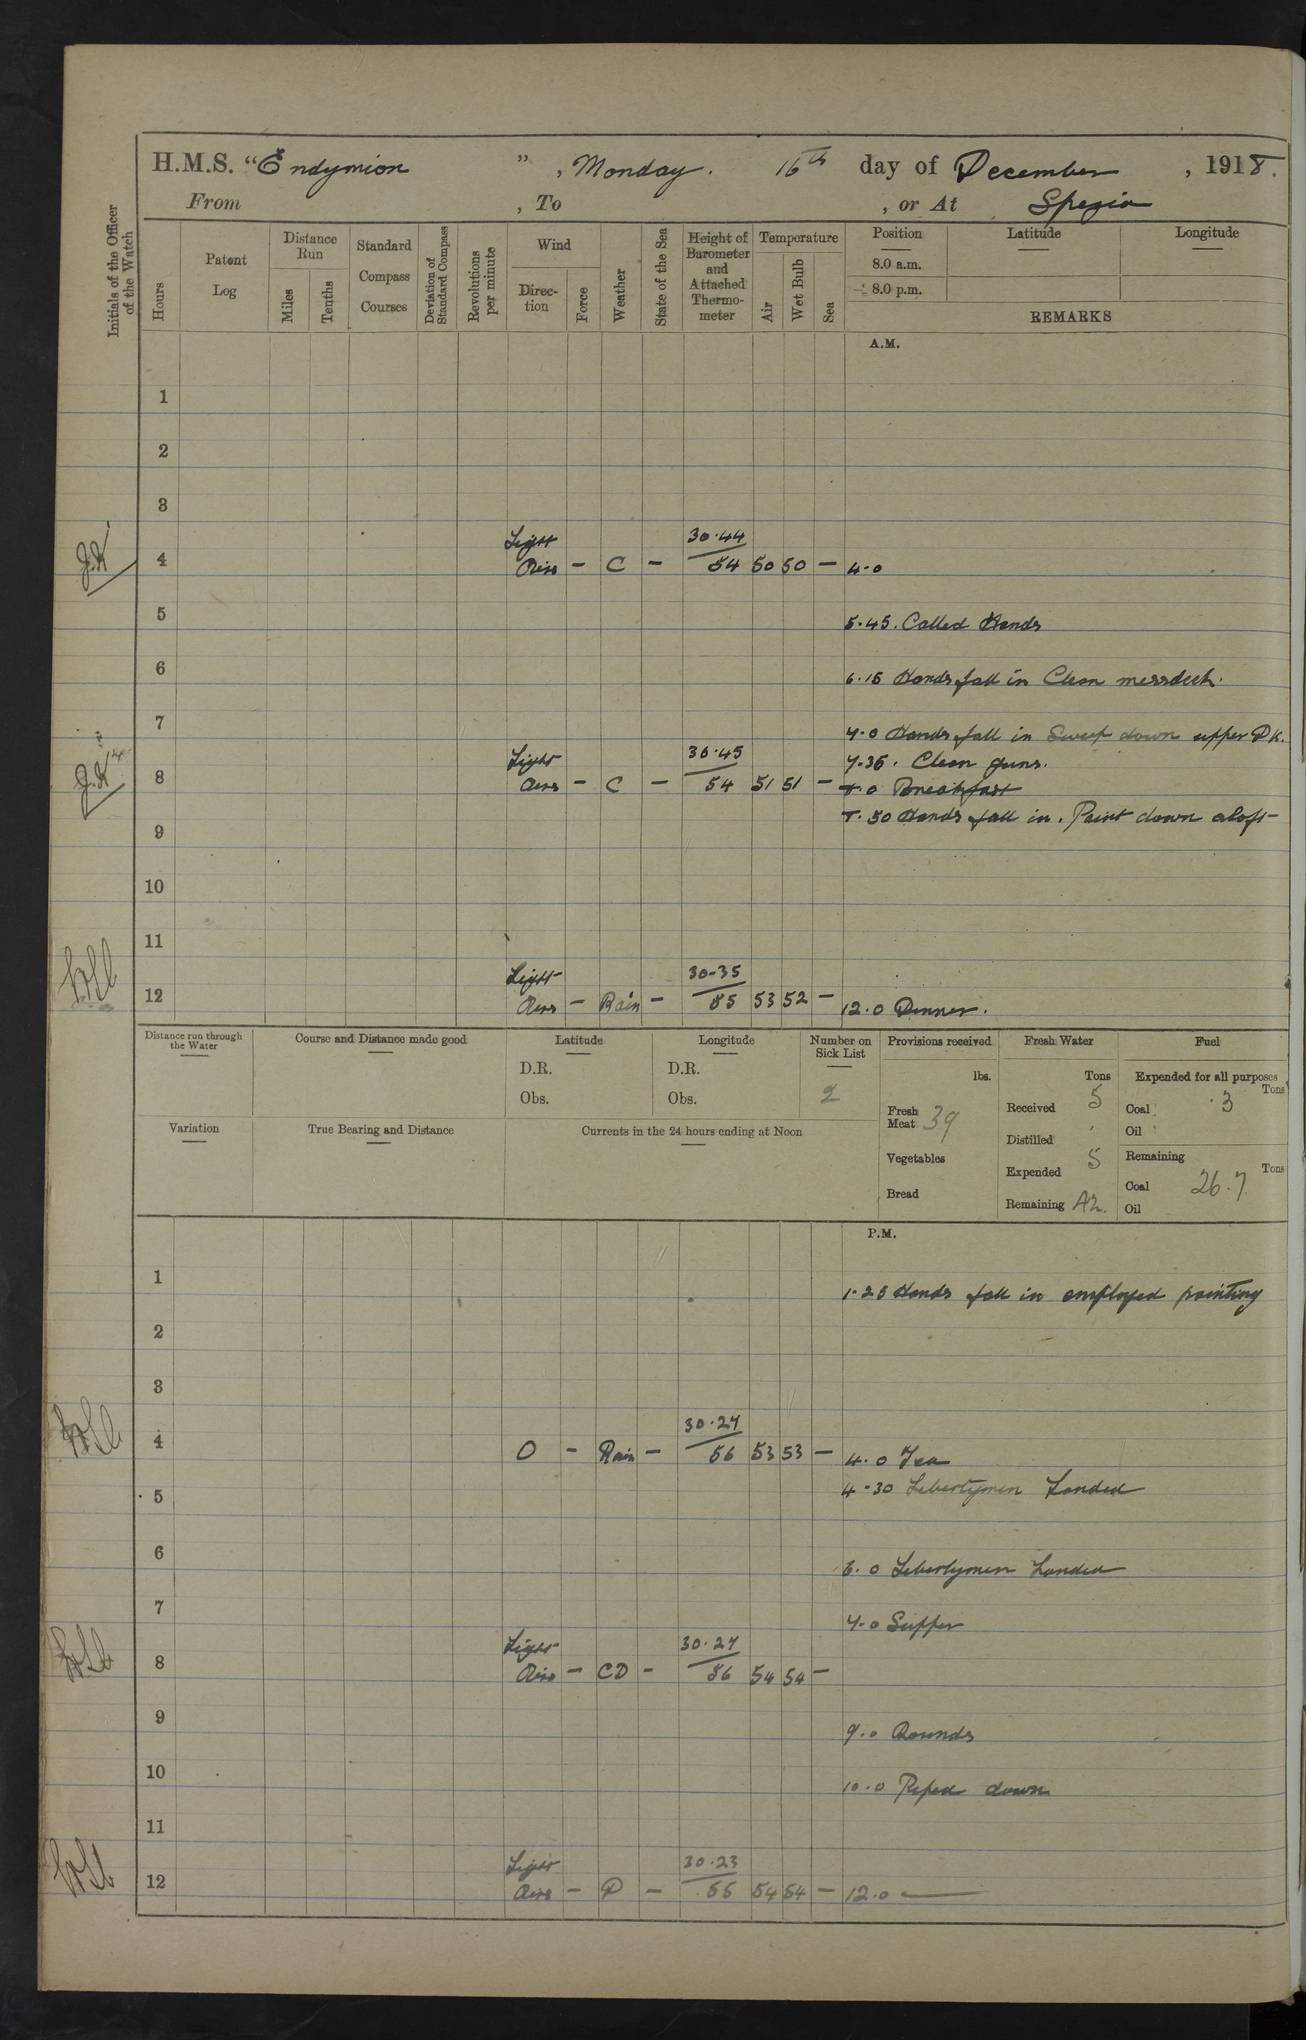 H.M.S. "Endymion", Monday. 16th day of December, 1918.
From , To , or At Spezia
Initials of the Officer of the Watch
Hours
Patent Log
Distance Run
Miles
Tenths
Standard Compass Courses
Deviation of Standard Compass
Revolutions per minute
Wind
Direction
Force
Weather
State of the Sea
Height of Barometer and Attached Thermometer
Temperature
Air
Wet Bulb
Sea
Position
8.0 a.m.
8.0 p.m.
Latitude
Longitude
REMARKS
A.M.
1
2
3
J.K. 4 Light Airs - C - 30.44 54 50 50 - 4.0
5 5.45. Called Hands
6 6.15 Hands fall in Clean messdeck.
7 7.0 Hands fall in Sweep down upper Dk.
7.35. Clean guns.
J.K. 8 Light Airs - C - 30.45 54 51 51 - 8.0 Breakfast
8.50 Hands fall in. Paint down aloft
9
10
11
12 Light Airs - Rain - 30.35 55 53 52 - 12.0 Dinner.
Distance run through the Water
Course and Distance made good
Latitude
D.R.
Obs.
Longitude
D.R.
Obs.
Number on Sick List
2
Variation
True Bearing and Distance
Currents in the 24 hours ending at Noon
Provisions received
lbs.
Fresh Meat 39
Vegetables
Bread
Fresh Water
Tons
Received 5
Distilled
Expended 5
Remaining 42.
Fuel
Expended for all purposes
Tons
Coal 3
Oil
Remaining
Tons
Coal 267
Oil
P.M.
1 1.25 Hands fall in employed painting
2
3
4 O - Rain - 30.27 56 53 53 - 4.0 Tea
4.30 Libertymen Landed
5
6 6.0 Libertymen Landed
7 7.0 Supper
8 Light Airs - CD - 30.27 56 54 54 -
9 9.0 Rounds
10 10.0 Piped down
11
12 Light Airs - D - 30.23 55 54 54 - 12.0